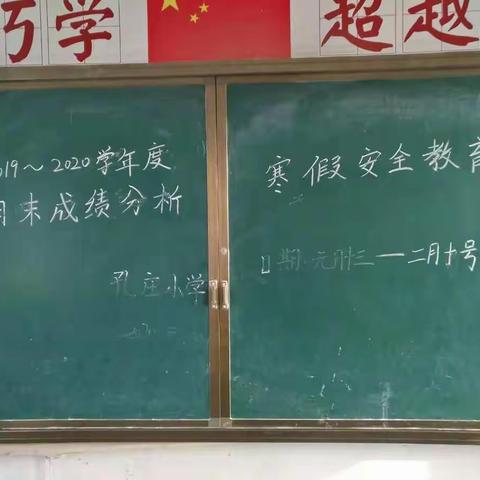 巧学
超越
019～2020学年度
期末成绩分析
孔庄小学
寒假安全教育
日期：元月十三一二月十号